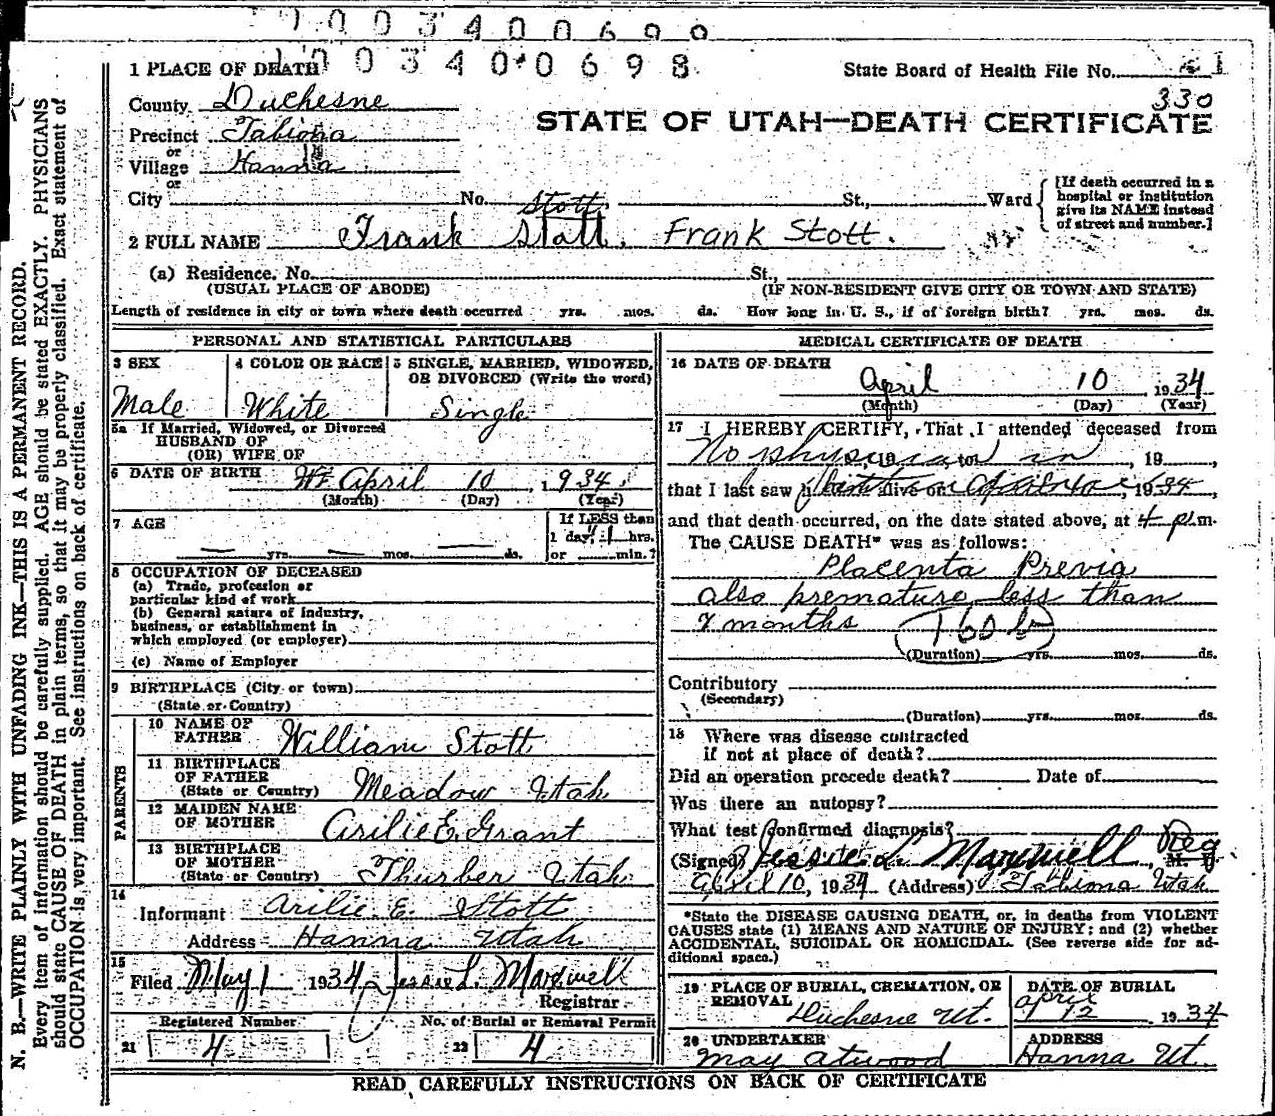 1003400699
1003400698
1 PLACE OF DEATH
State Board of Health File No. 21
330
County Duchesne
STATE OF UTAH—DEATH CERTIFICATE
Precinct Tabiona
or
Village Hanna
or
City No. St., Ward
[If death occurred in a
hospital or institution
give its NAME instead
of street and number.]
Stott.
2 FULL NAME Frank Stott. Frank Stott.
(a) Residence. No. St.,
(USUAL PLACE OF ABODE) (IF NON-RESIDENT GIVE CITY OR TOWN AND STATE)
Length of residence in city or town where death occurred yrs. mos. ds. How long in U. S., if of foreign birth? yrs. mos. ds.
PERSONAL AND STATISTICAL PARTICULARS
3 SEX
Male
4 COLOR OR RACE
White
5 SINGLE, MARRIED, WIDOWED,
OR DIVORCED (Write the word)
Single
5a If Married, Widowed, or Divorced
HUSBAND OF
(OR) WIFE OF
6 DATE OF BIRTH April 10, 1934.
(Month) (Day) (Year)
7 AGE
yrs. mos. ds.
If LESS than
1 day, 1 hrs.
or min.?
8 OCCUPATION OF DECEASED
(a) Trade, profession or
particular kind of work
(b) General nature of industry,
business, or establishment in
which employed (or employer)
(c) Name of Employer
9 BIRTHPLACE (City or town)
(State or Country)
PARENTS
10 NAME OF
FATHER William Stott
11 BIRTHPLACE
OF FATHER
(State or Country) Meadow Utah
12 MAIDEN NAME
OF MOTHER Arilie E. Grant
13 BIRTHPLACE
OF MOTHER
(State or Country) Thurber Utah
14
Informant Arilie E. Stott
Address Hanna Utah
15
Filed May 1 1934 Jessie L. Maxwell
Registrar
Registered Number No. of Burial or Removal Permit
21 4 22 4
MEDICAL CERTIFICATE OF DEATH
16 DATE OF DEATH
April 10 1934
(Month) (Day) (Year)
17 I HEREBY CERTIFY, That I attended deceased from
No physician in, 19
that I last saw h alive on, 1934,
and that death occurred, on the date stated above, at 4 p.m.
The CAUSE DEATH* was as follows:
Placenta Previa
also premature less than
7 months
160 b
(Duration) yrs. mos. ds.
Contributory
(Secondary)
(Duration) yrs. mos. ds.
18 Where was disease contracted
if not at place of death?
Did an operation precede death? Date of
Was there an autopsy?
What test confirmed diagnosis?
(Signed) Jessie L. Maxwell Reg, M. D.
April 10, 1934 (Address) Tabiona Utah
*State the DISEASE CAUSING DEATH, or, in deaths from VIOLENT
CAUSES state (1) MEANS AND NATURE OF INJURY; and (2) whether
ACCIDENTAL, SUICIDAL OR HOMICIDAL. (See reverse side for ad-
ditional space.)
19 PLACE OF BURIAL, CREMATION, OR
REMOVAL
Duchesne Ut.
DATE OF BURIAL
April
12 1934
20 UNDERTAKER
May Atwood
ADDRESS
Hanna Ut.
READ CAREFULLY INSTRUCTIONS ON BACK OF CERTIFICATE
N. B.—WRITE PLAINLY WITH UNFADING INK—THIS IS A PERMANENT RECORD.
Every item of information should be carefully supplied. AGE should be stated EXACTLY. PHYSICIANS
should state CAUSE OF DEATH in plain terms, so that it may be properly classified. Exact statement of
OCCUPATION is very important. See instructions on back of certificate.